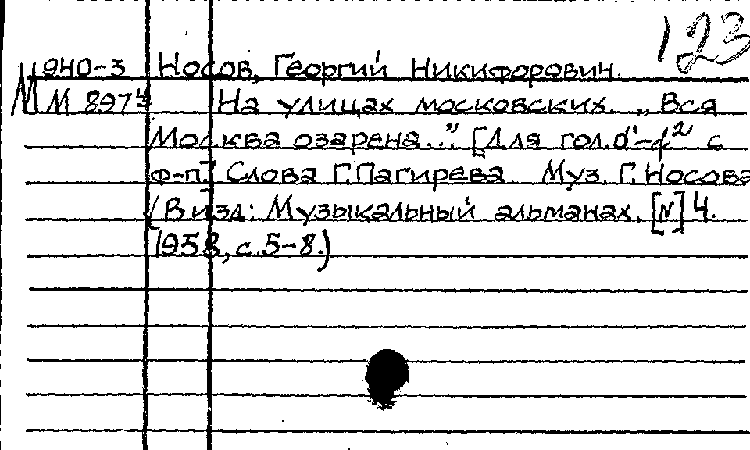 123
М940-3 Носов, Георгий Никифорович.
М 897 На улицах московских. „Вся
Москва озарена..." [Для гол. d¹-f² с
ф-п] Слова Г. Пагирева Муз. Г. Носова
(В изд: Музыкальный альманах. [N] 4.
1958, с. 5-8.)